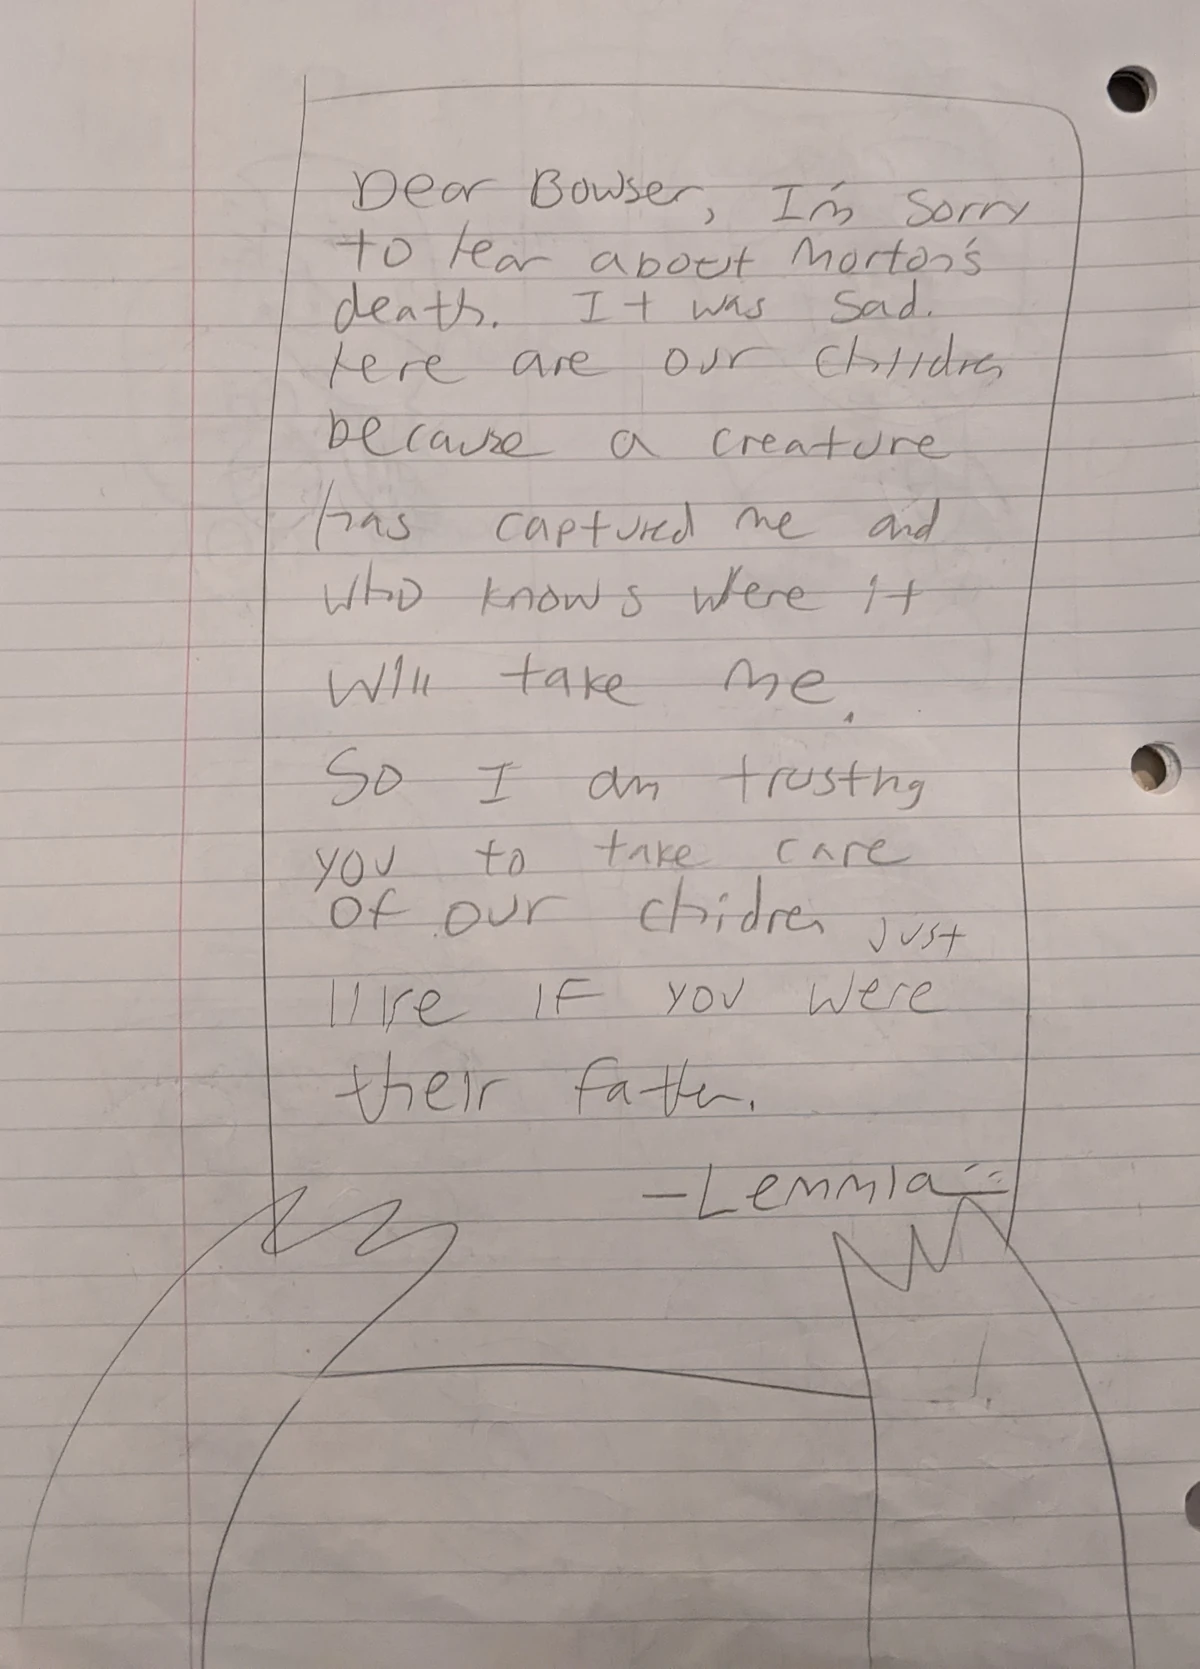 Dear Bowser, I'm sorry
to hear about Morton's
death. It was sad.
Here are our children
because a creature
has captured me and
who knows were it
will take me.
So I am trusting
you to take care
of our chidren just
like if you were
their father.
-Lemmla